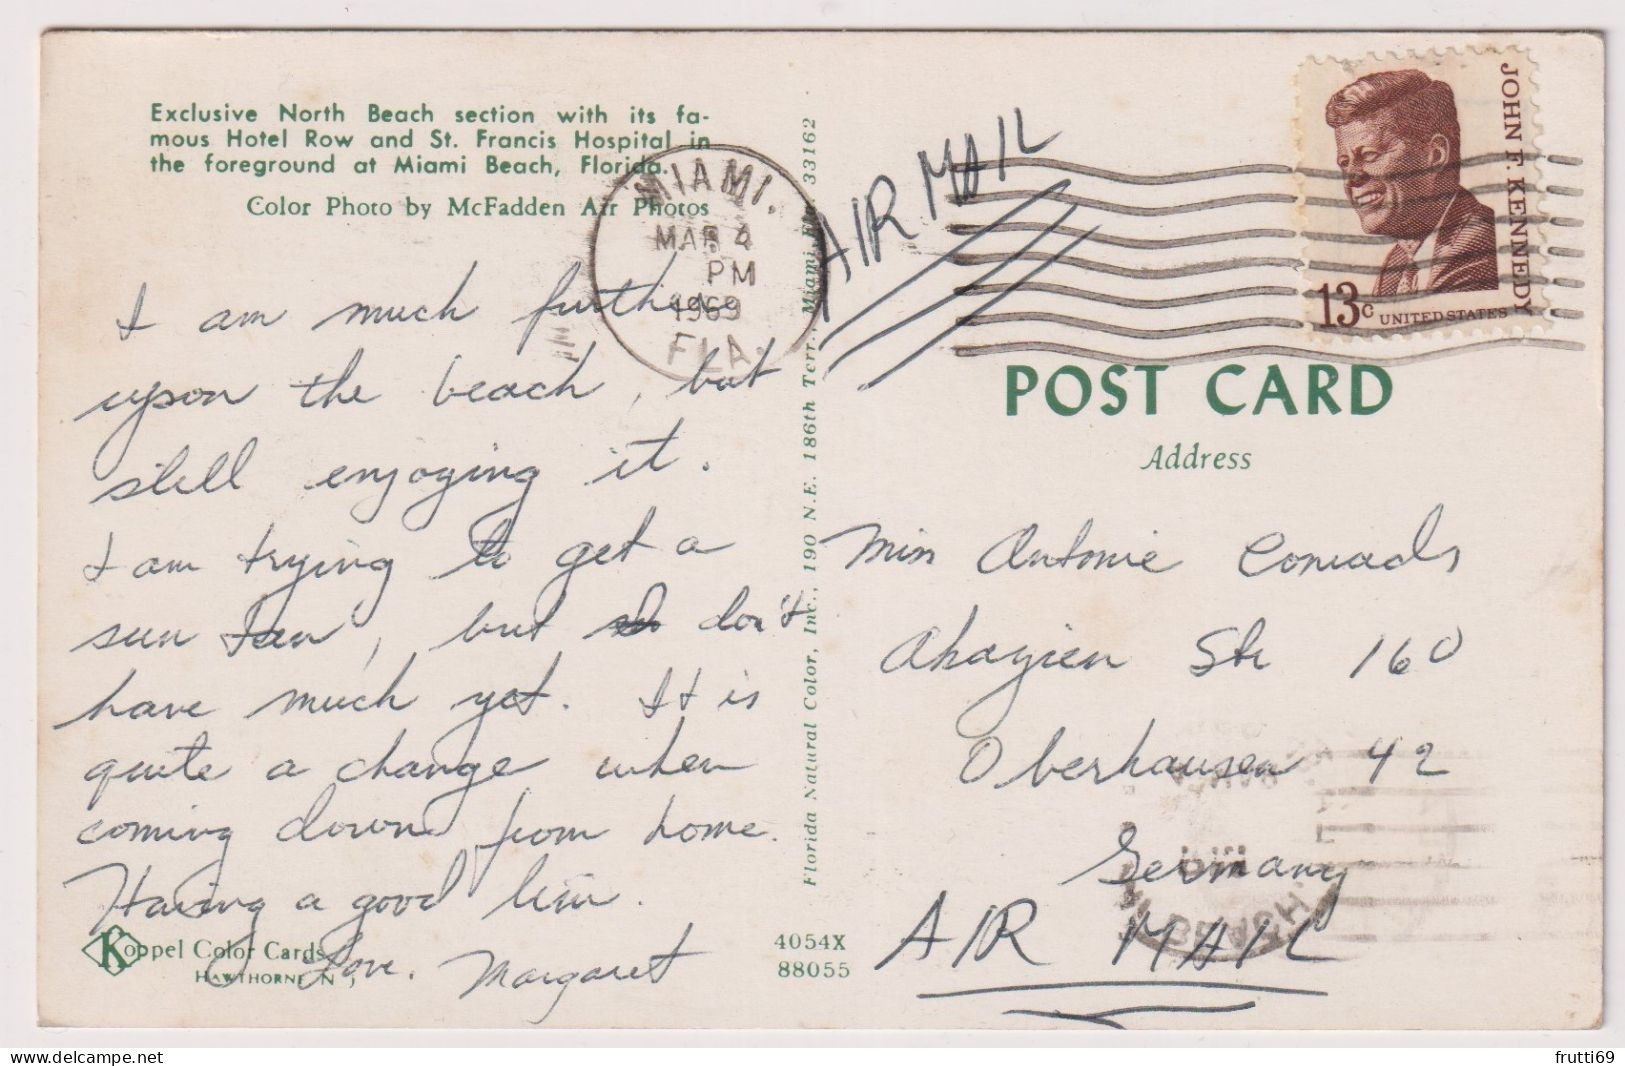 Exclusive North Beach section with its fa-
mous Hotel Row and St. Francis Hospital in
the foreground at Miami Beach, Florida.
Color Photo by McFadden Air Photos
I am much further
upon the beach, but
still enjoying it.
I am trying to get a
sun tan, but don't
have much yet. It is
quite a change when
coming down from home.
Having a good time.
Love. Margaret
Koppel Color Cards
HAWTHORNE N J
4054X
88055
Florida Natural Color, Inc., 190 N.E. 186th Terr., Miami, Fla. 33162
MIAMI,
MAR 4
PM
1969
FLA.
AIR MAIL
JOHN F. KENNEDY
13c UNITED STATES
POST CARD
Address
Miss Antonie Conrads
Akazien Str 160
Oberhausen 42
Germany
AIR MAIL
frutti69